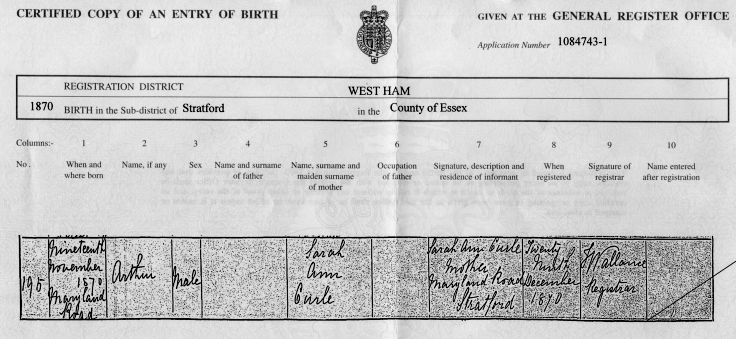 CERTIFIED COPY OF AN ENTRY OF BIRTH
GIVEN AT THE GENERAL REGISTER OFFICE
Application Number 1084743-1
REGISTRATION DISTRICT WEST HAM
1870 BIRTH in the Sub-district of Stratford in the County of Essex
Columns:- 1 2 3 4 5 6 7 8 9 10
No. When and where born Name, if any Sex Name and surname of father Name, surname and maiden surname of mother Occupation of father Signature, description and residence of informant When registered Signature of registrar Name entered after registration
195 Nineteenth November 1870 Maryland Road Arthur Male Sarah Ann Curle Sarah Ann Curle Mother Maryland Road Stratford Twenty Ninth December 1870 Wallance Registrar